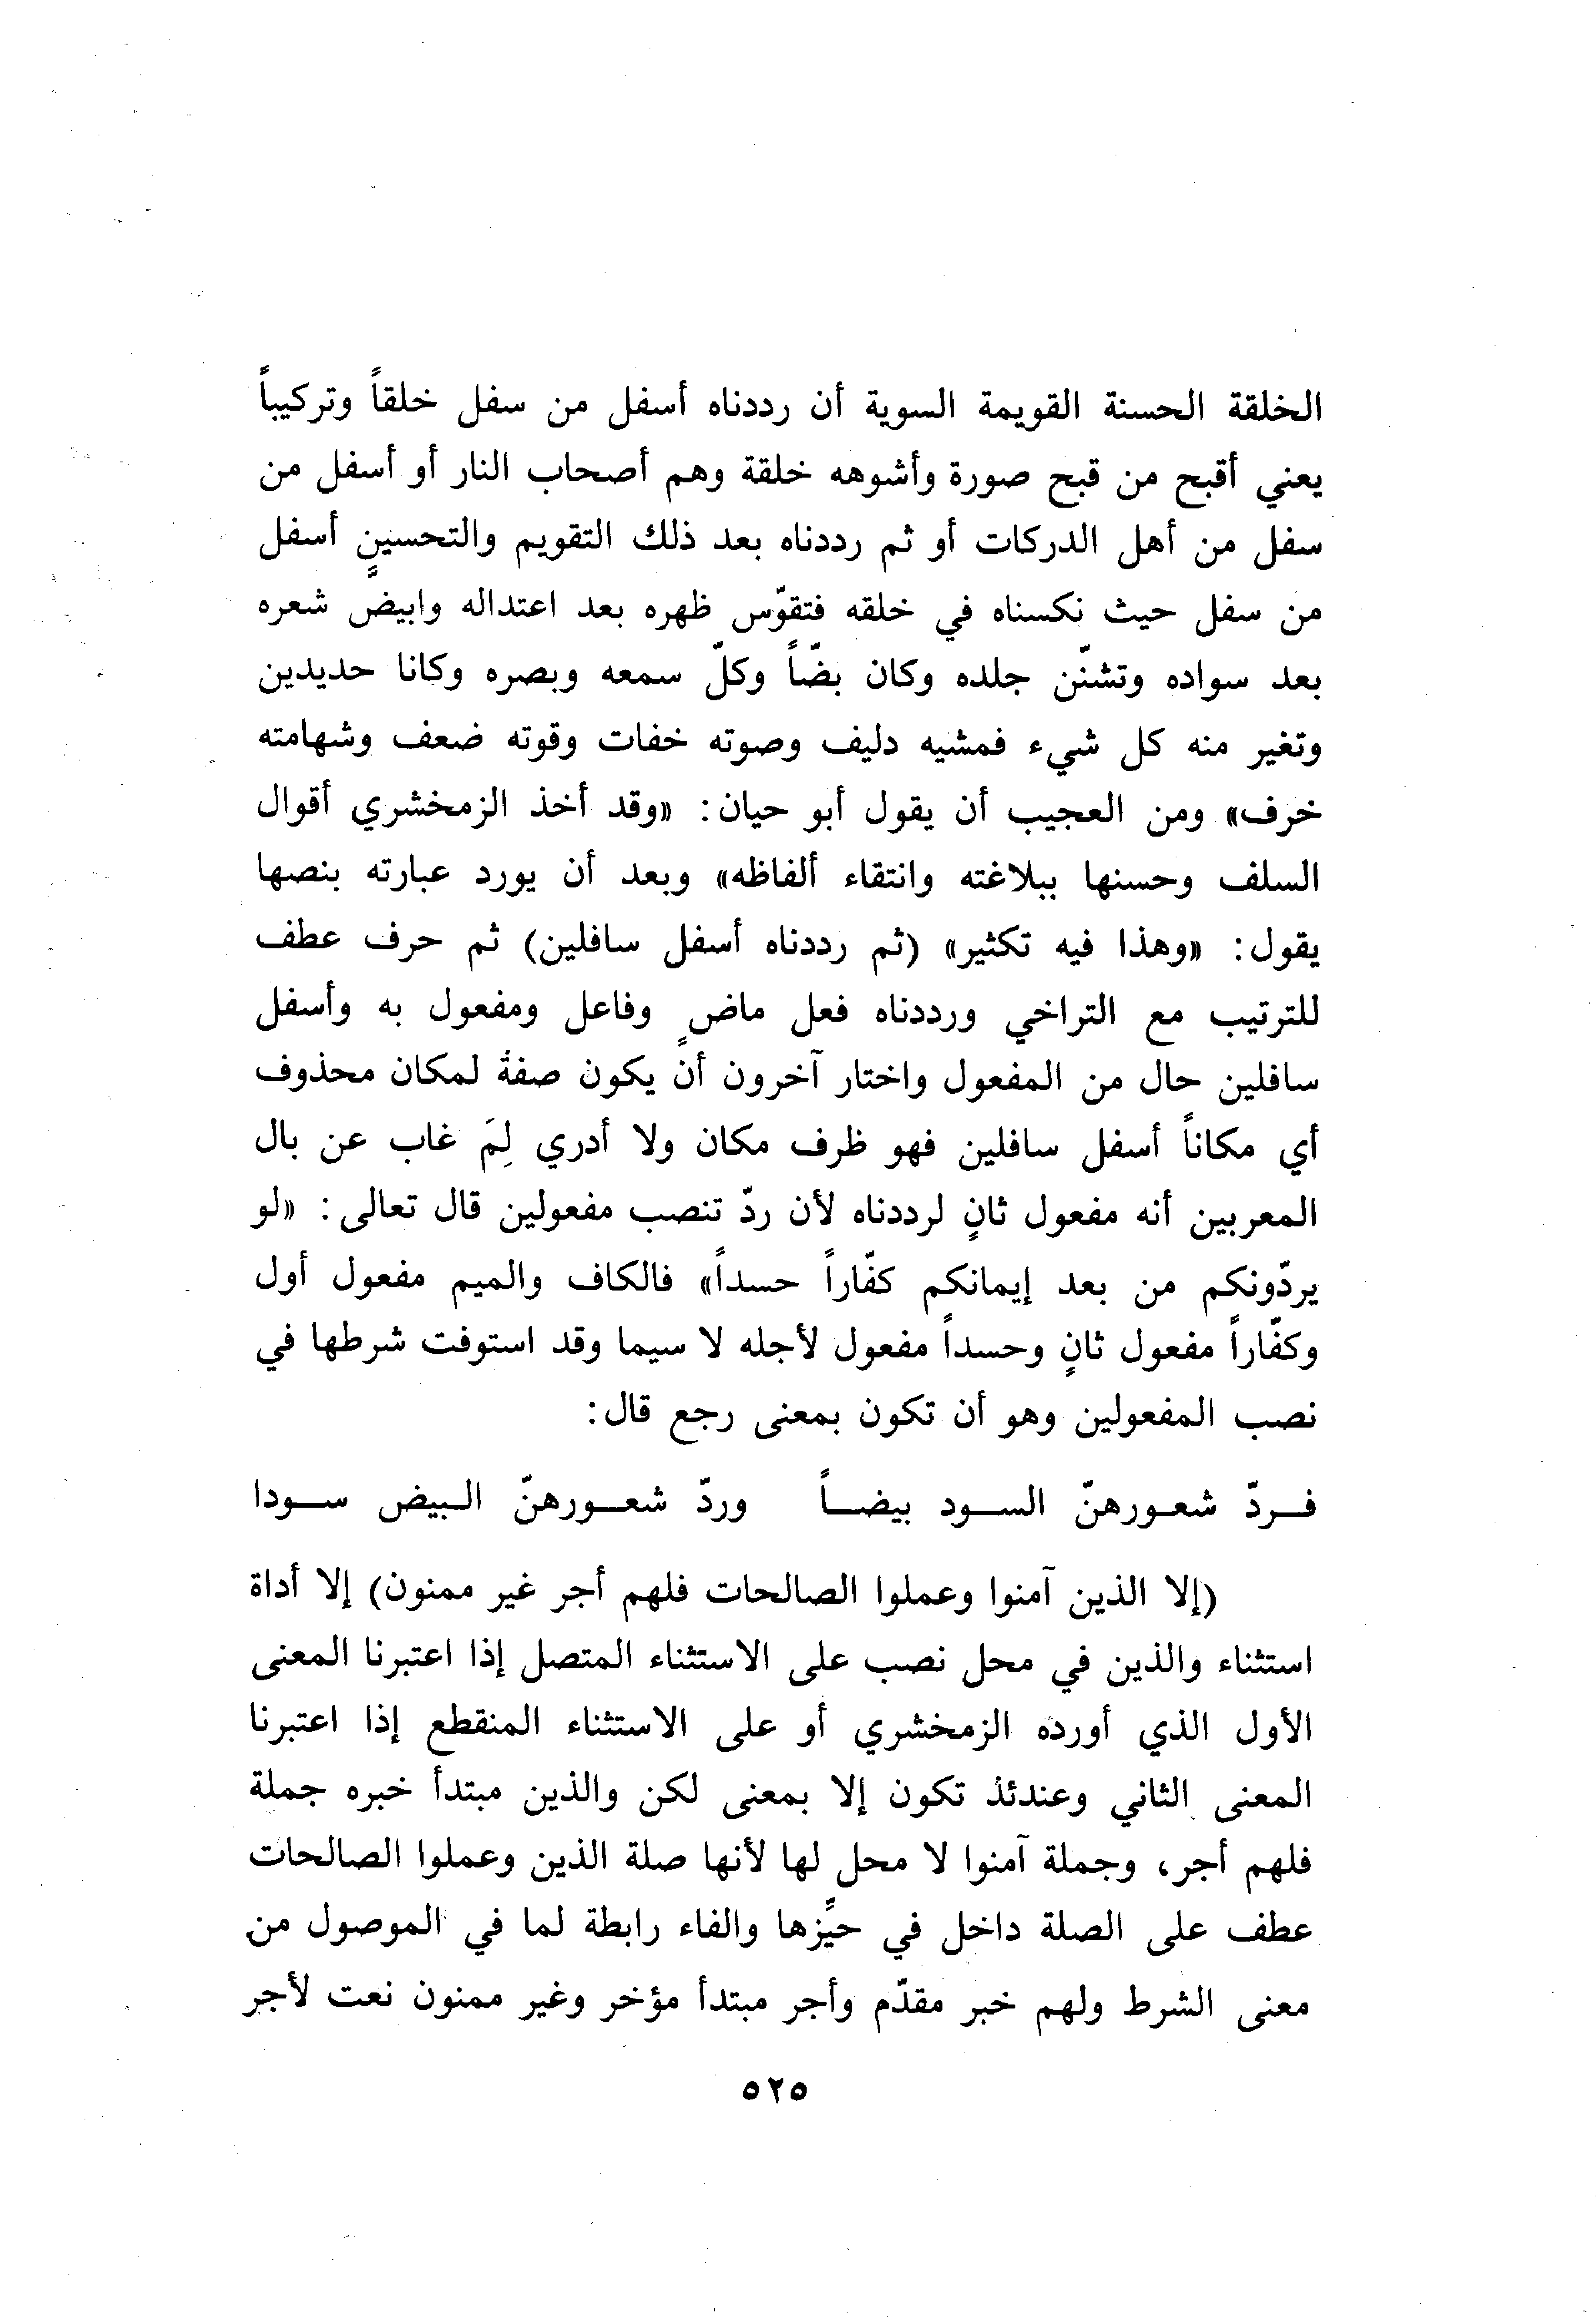 الخلقة الحسنة القويمة السوية أن رددناه أسفل من سفل خلقاً وتركيباً
يعني أقبح من قبح صورة وأشوهه خلقة وهم أصحاب النار أو أسفل من
سفل من أهل الدركات أو ثم رددناه بعد ذلك التقويم والتحسينٍ أسفل
من سفل حيث نكسناه في خلقه فتقوّس ظهره بعد اعتداله وابيضّ شعره
بعد سواده وتشنّن جلده وكان بضّاً وكلّ سمعه وبصره وكانا حديدين
وتغير منه كل شيء فمشيه دليف وصوته خفات وقوته ضعف وشهامته
خرف» ومن العجيب أن يقول أبو حيان: «وقد أخذ الزمخشري أقوال
السلف وحسنها ببلاغته وانتقاء ألفاظه» وبعد أن يورد عبارته بنصها
يقول: «وهذا فيه تكثير» (ثم رددناه أسفل سافلين) ثم حرف عطف
للترتيب مع التراخي ورددناه فعل ماضٍ وفاعل ومفعول به وأسفل
سافلين حال من المفعول واختار آخرون أن يكون صفة لمكان محذوف
أي مكاناً أسفل سافلين فهو ظرف مكان ولا أدري لِمَ غاب عن بال
المعربين أنه مفعول ثانٍ لرددناه لأن ردّ تنصب مفعولين قال تعالى: «لو
يردّونكم من بعد إيمانكم كفّاراً حسداً» فالكاف والميم مفعول أول
وكفّاراً مفعول ثانٍ وحسداً مفعول لأجله لا سيما وقد استوفت شرطها في
نصب المفعولين وهو أن تكون بمعنى رجع قال:
فردّ شعورهنّ السود بيضاً وردّ شعورهنّ البيض سودا
(إلا الذين آمنوا وعملوا الصالحات فلهم أجر غير ممنون) إلا أداة
استثناء والذين في محل نصب على الاستثناء المتصل إذا اعتبرنا المعنى
الأول الذي أورده الزمخشري أو على الاستثناء المنقطع إذا اعتبرنا
المعنى الثاني وعندئذ تكون إلا بمعنى لكن والذين مبتدأ خبره جملة
فلهم أجر، وجملة آمنوا لا محل لها لأنها صلة الذين وعملوا الصالحات
عطف على الصلة داخل في حيِّزها والفاء رابطة لما في الموصول من
معنى الشرط ولهم خبر مقدّم وأجر مبتدأ مؤخر وغير ممنون نعت لأجر
٥٢٥